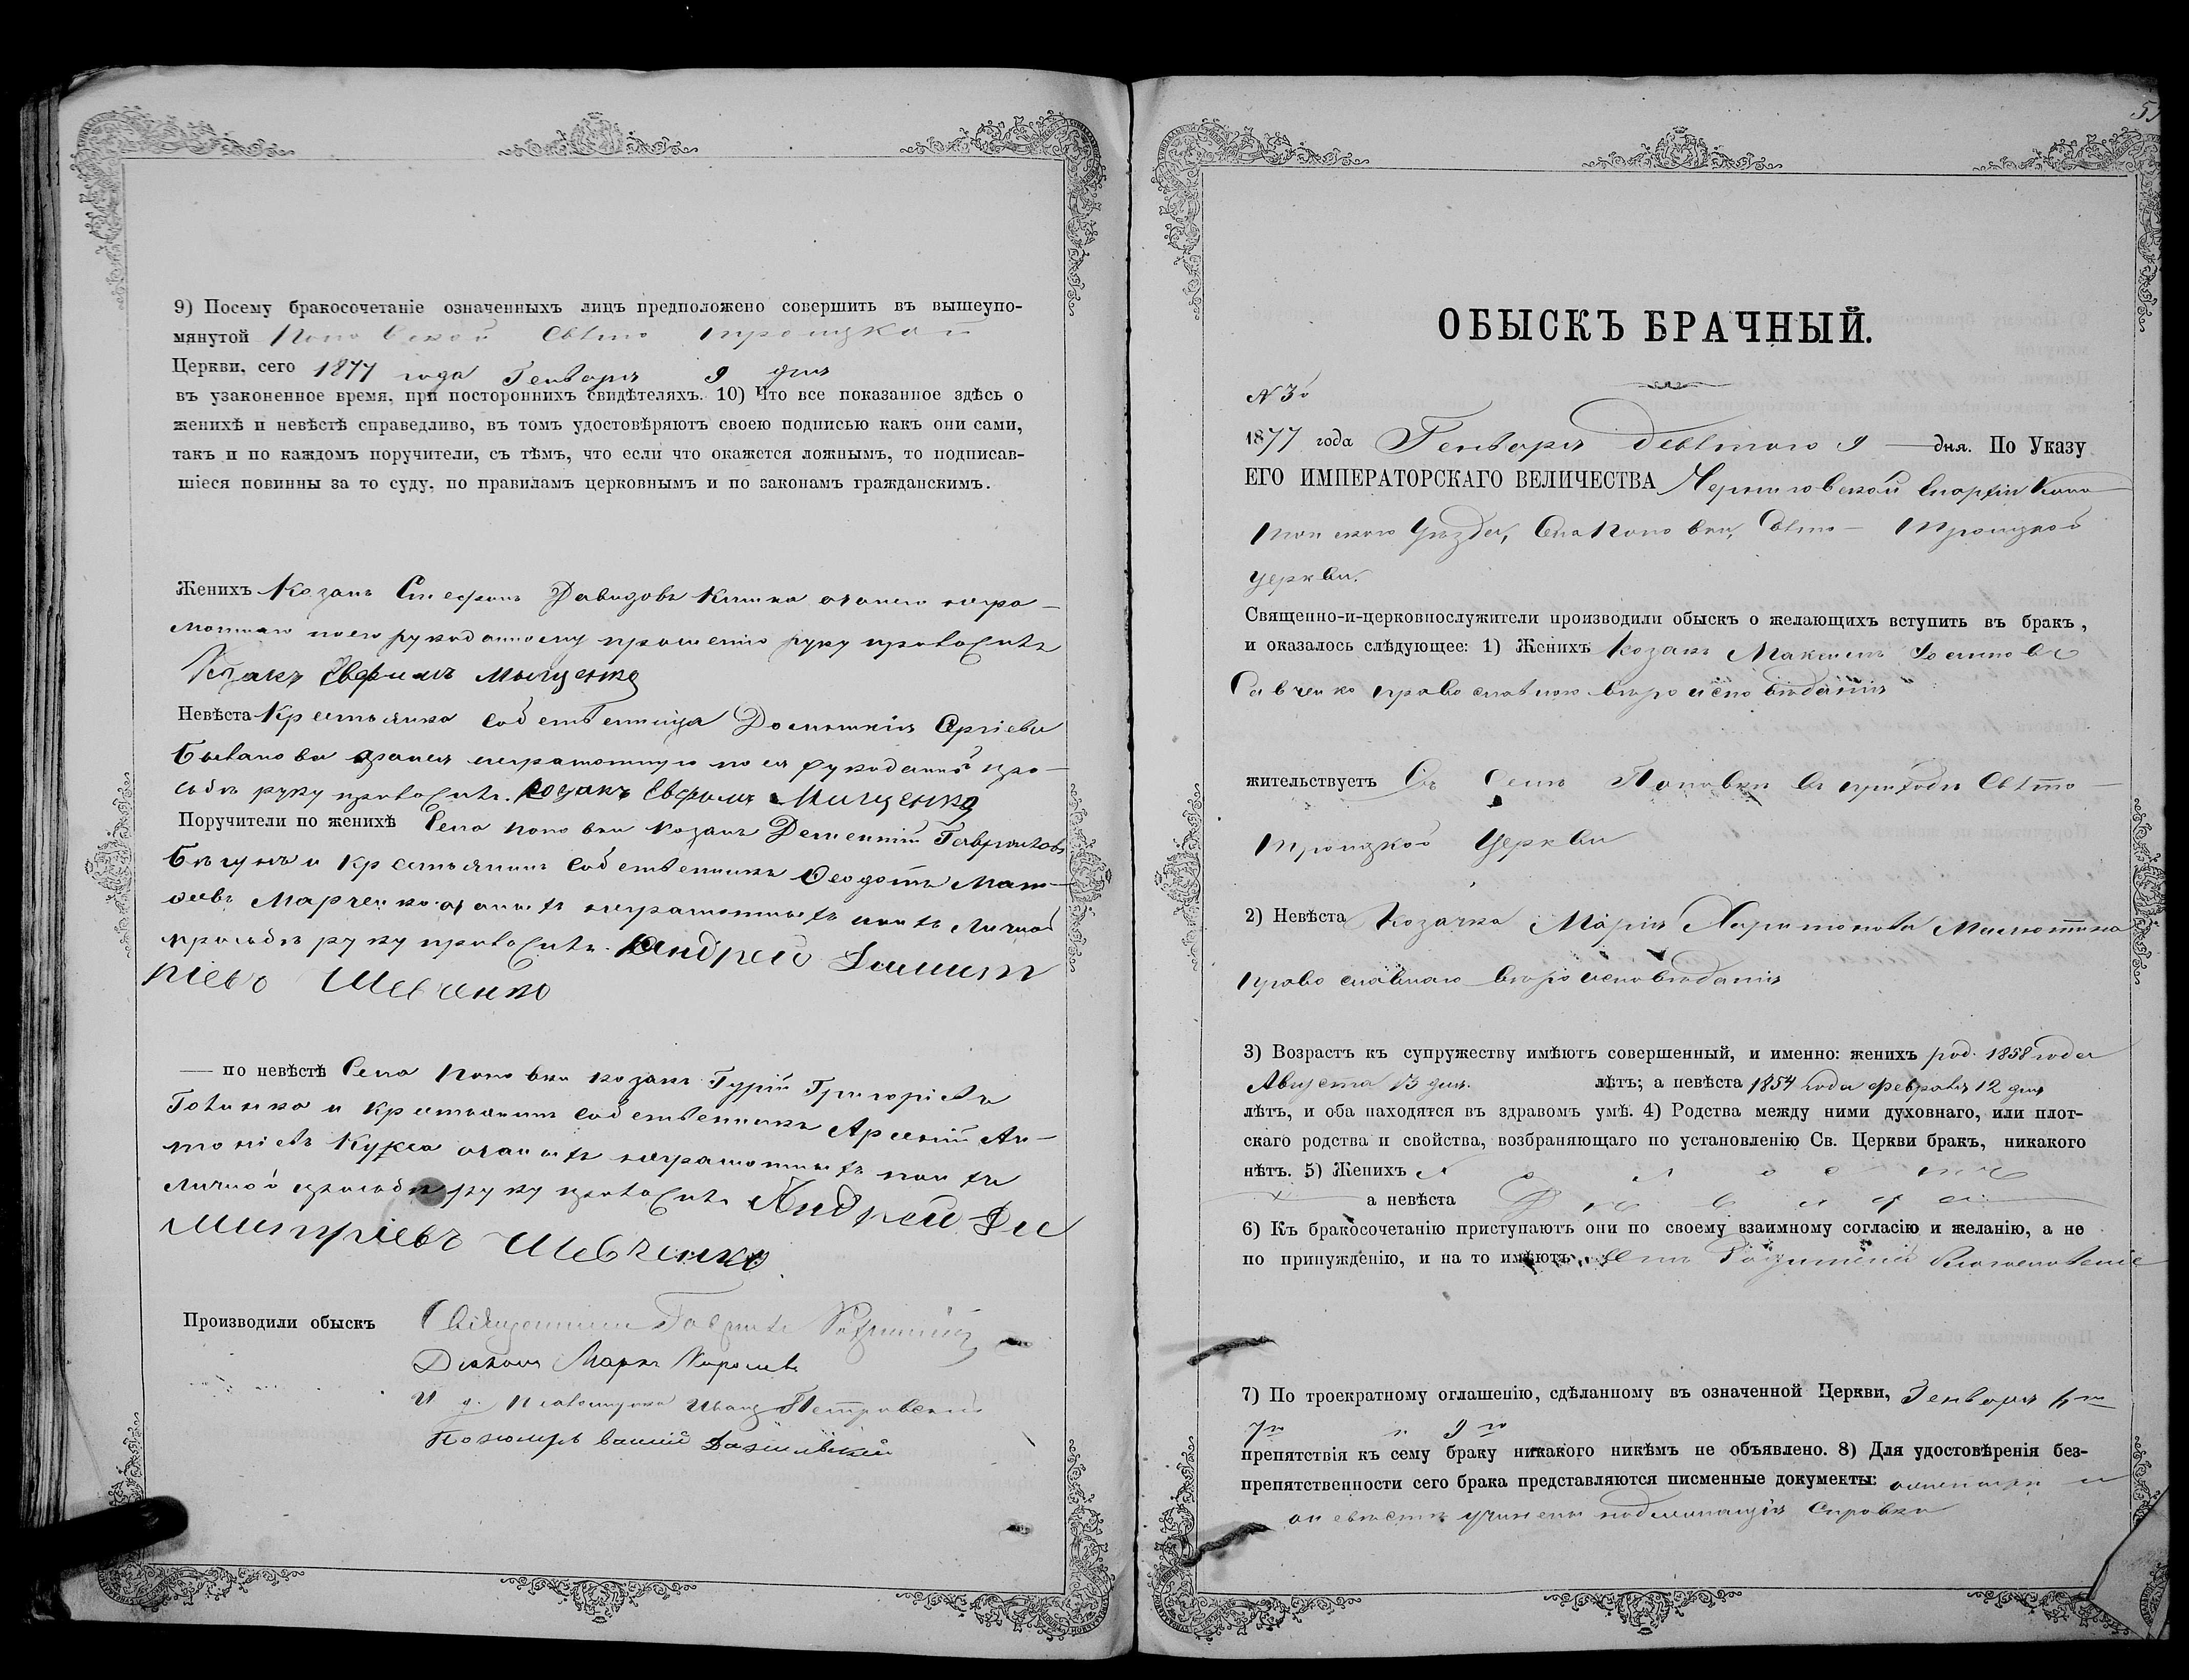 9) Посему бракосочетаніе означенныхъ лицъ предположено совершить въ вышеупо-
мянутой Поповской Свѣто Троицкой
Церкви, сего 1877 года Генваря 9 дня
въ узаконенное время, при постороннихъ свидѣтеляхъ. 10) Что все показанное здѣсь о
женихѣ и невѣстѣ справедливо, въ томъ удостовѣряютъ своею подписью какъ они сами,
такъ и по каждомъ поручители, съ тѣмъ, что если что окажется ложнымъ, то подписав-
шіеся повинны за то суду, по правиламъ церковнымъ и по законамъ гражданскимъ.
Женихъ Козакъ Стефанъ Давидовъ а занего негра-
мотнаго поего рукоданному прошенію руку приложилъ
Козакъ Евфимъ Мищенко
Невѣста Крестьянка собственница Домникія
неграмотную поея рукоданной про-
сьбѣ руку приложилъ. Козакъ Евфимъ Мищенко
Поручители по женихѣ Села Поповки козакъ Дементій Гавриловъ
и крестьянинъ собственникъ Феодотъ Мат-
феевъ Марченко а занихъ неграмотныхъ поихъ личной
просьбѣ руку приложилъ. Андрей Димит
ріевъ Шевченко
— по невѣстѣ Села Поповки козакъ Гурій Григоріевъ
и крестьянинъ собственникъ Арсеній Ан-
тоніевъ Кукса а занихъ неграмотныхъ поихъ
личной просьбѣ руку приложилъ Андрей Ди
митріевъ Шевченко
Производили обыскъ Священникъ Гавріилъ
Діаконъ Маркъ
И. д. Псаломщика Иванъ Петровскій
Пономарь
ОБЫСКЪ БРАЧНЫЙ.
N 3й
1877 года Генваря девятого 9 — дня. По Указу
ЕГО ИМПЕРАТОРСКАГО ВЕЛИЧЕСТВА Черниговской Епархіи Коно
топскаго Уѣзда, Села Поповки, Свѣто — Троицкой
церкви.
Священно-и-церковнослужители производили обыскъ о желающихъ вступить въ бракъ,
и оказалось слѣдующее: 1) Женихъ Козакъ Максимъ
Савченко православного вѣроисповѣданія
жительствуетъ Въ Селѣ Поповки въ приходѣ Свѣто —
Троицкой Церкви
2) Невѣста Козачка Марія Харитонова
православнаго вѣроисповѣданія
3) Возрастъ къ супружеству имѣютъ совершенный, и именно: женихъ род. 1858 года
Августа 13 дня. лѣтъ; а невѣста 1854 года февраля 12 дня
лѣтъ, и оба находятся въ здравомъ умѣ. 4) Родства между ними духовнаго, или плот-
скаго родства и свойства, возбраняющаго по установленію Св. Церкви бракъ, никакого
нѣтъ. 5) Женихъ Холостъ
а невѣста Дѣвица
6) Къ бракосочетанію приступаютъ они по своему взаимному согласію и желанію, а не
по принужденію, и на то имѣютъ отъ Родителей благословеніе
7) По троекратному оглашенію, сдѣланному въ означенной Церкви, Генваря 6го
7го и 9го
препятствія къ сему браку никакого никѣмъ не объявлено. 8) Для удостовѣренія без-
препятственности сего брака представляются писменные документы:
учинена надлежащія справка